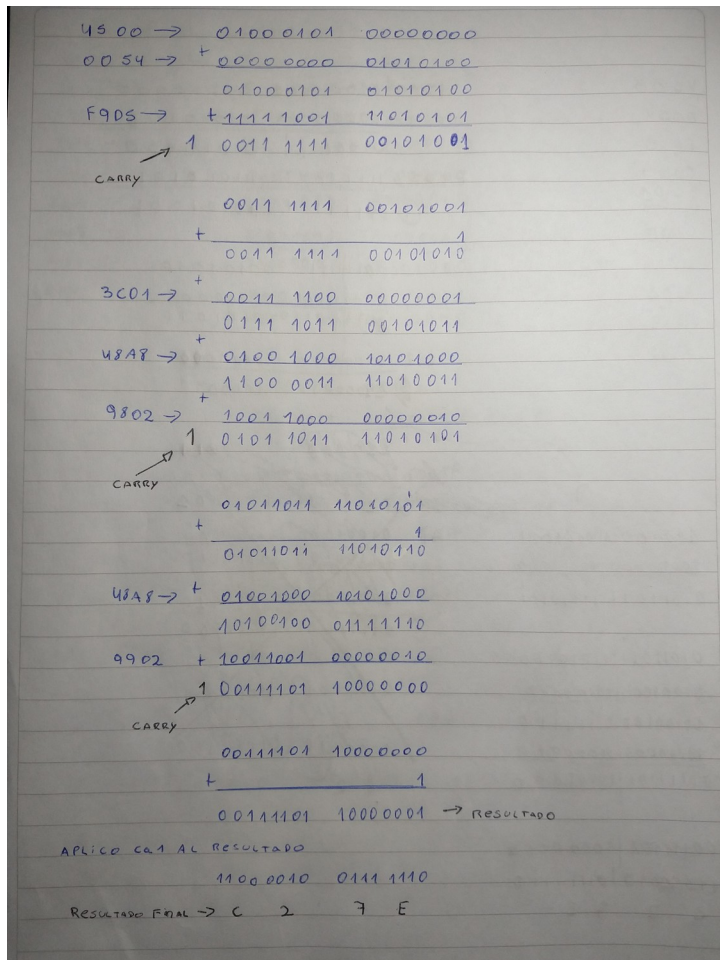 4500 → 01000101 00000000
0054 → + 00000000 01010100
01000101 01010100
F9D5 → + 11111001 11010101
1 0011 1111 00101001
CARRY
0011 1111 00101001
+ 1
0011 1111 00101010
+
3C01 → 0011 1100 00000001
0111 1011 00101011
+
48A8 → 0100 1000 10101000
1100 0011 11010011
+
9802 → 1001 1000 00000010
1 0101 1011 11010101
CARRY
01011011 11010101
+ 1
01011011 11010110
48A8 → + 01001000 10101000
10100100 01111110
9902 + 10011001 00000010
1 00111101 10000000
CARRY
00111101 10000000
+ 1
00111101 10000001 → RESULTADO
APLICO CA1 AL RESULTADO
11000010 0111 1110
RESULTADO FINAL → C 2 7 E